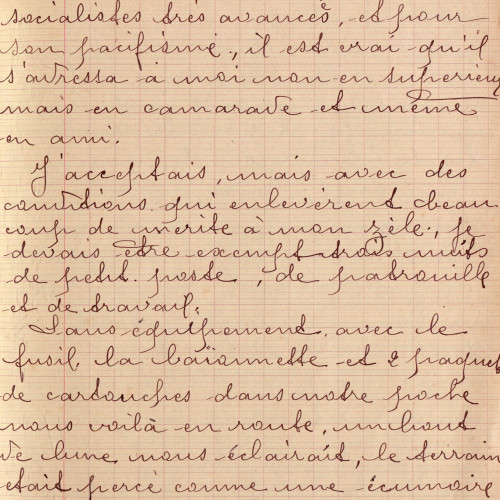 socialistes très avancés, et pour
son pacifisme, il est vrai qu'il
s'adressa à moi non en supérieur
mais en camarade et même
en ami.
J'acceptais, mais avec des
conditions qui enlevèrent beau
coup de mérite à mon zèle, je
devais être exempt trois nuits
de petit poste, de patrouille
et de travail.
Sans équipement avec le
fusil la baïonnette et 2 paquets
de cartouches dans notre poche
nous voilà en route, un bout
de lune nous éclairait, le terrain
était percé comme une écumoire